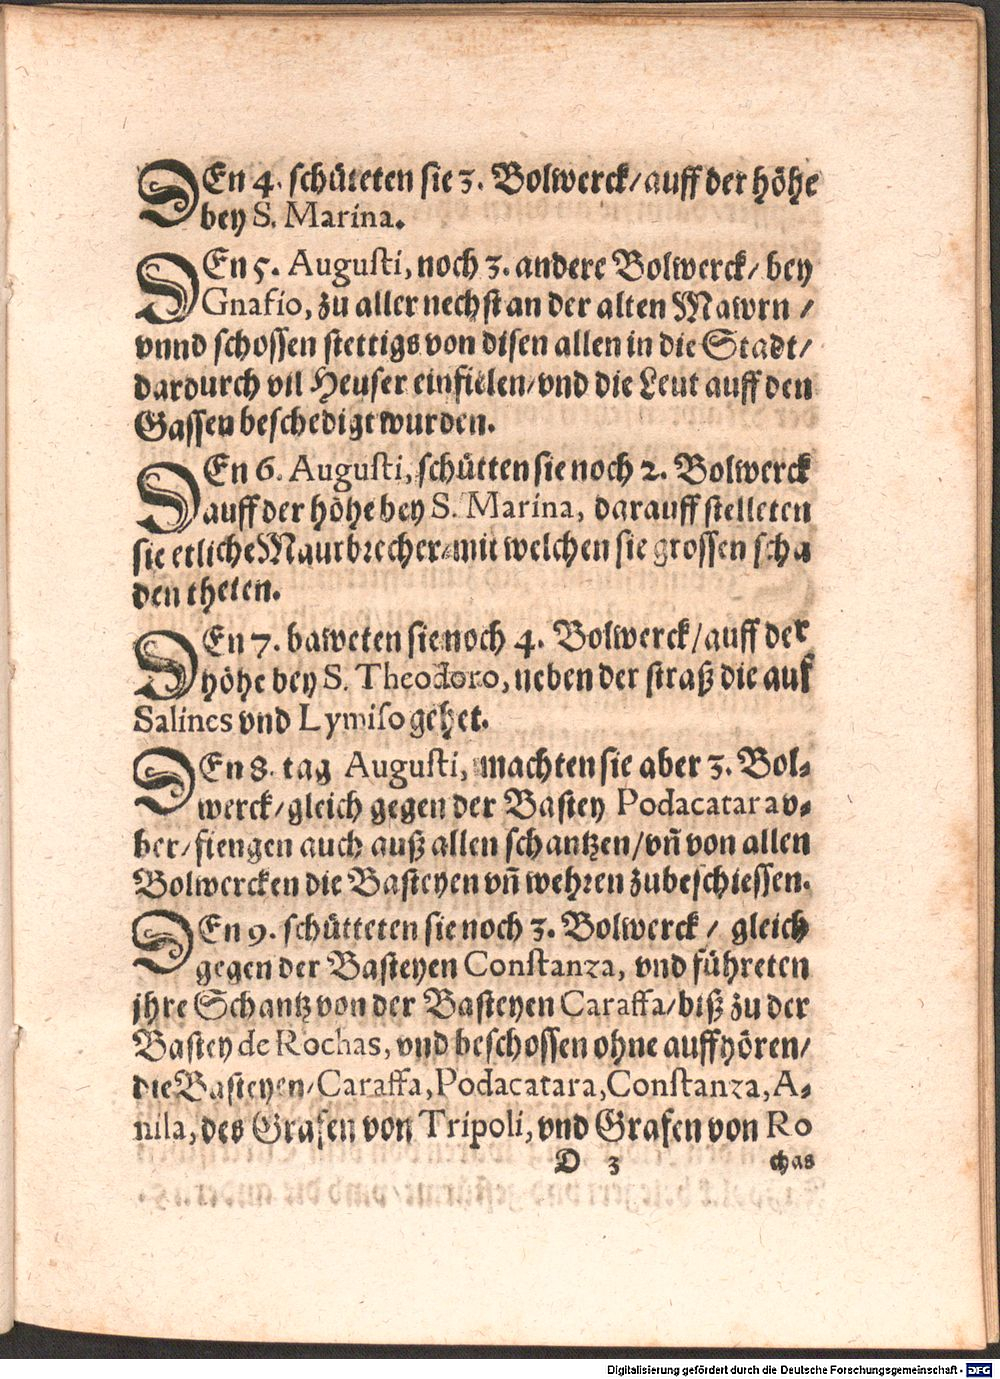 DEn 4. schüteten sie 3. Bolwerck/ auff der höhe
bey S. Marina.
DEn 5. Augusti, noch 3. andere Bolwerck/ bey
Gnasio, zu aller nechst an der alten Mawrn /
vnnd schossen stettigs von disen allen in die Stadt/
dardurch vil Heuser einfielen/ vnd die Leut auff den
Gassen beschedigt wurden.
DEn 6. Augusti, schütten sie noch 2. Bolwerck
auff der höhe bey S. Marina, darauff stelleten
sie etliche Maurbrecher/ mit welchen sie grossen scha
den theten.
DEn 7. baweten sie noch 4. Bolwerck/ auff der
höhe bey S. Theodoro, neben der straß die auf
Salines vnd Lymiso gehet.
DEn 8. tag Augusti, machten sie aber 3. Bol-
werck/ gleich gegen der Bastey Podacatara v-
ber/ fiengen auch auß allen schantzen/ vñ von allen
Bolwercken die Basteyen vñ wehren zubeschiessen.
DEn 9. schütteten sie noch 3. Bolwerck / gleich
gegen der Basteyen Constanza, vnd führeten
jhre Schantz von der Basteyen Caraffa/ biß zu der
Bastey de Rochas, vnd beschossen ohne auffhören/
die Basteyen/ Caraffa, Podacatara, Constanza, A-
nila, des Grafen von Tripoli, vnd Grafen von Ro
D 3 chas
Digitalisierung gefördert durch die Deutsche Forschungsgemeinschaft - DFG